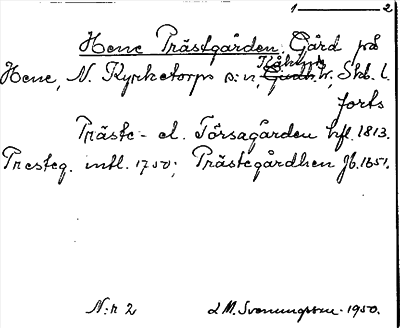 1 — 2
Hene Prästgården, Gård på
Kåkinds
Hene, N. Kyrketorps s:n, Gudh. hr, Skb. l.
forts
Präste- el. Torsagården hfl. 1813.
Presteg. intl. 1750; Prästegårdhen Jb. 1651.
N:r 2 L M. Svenungsson. 1950.